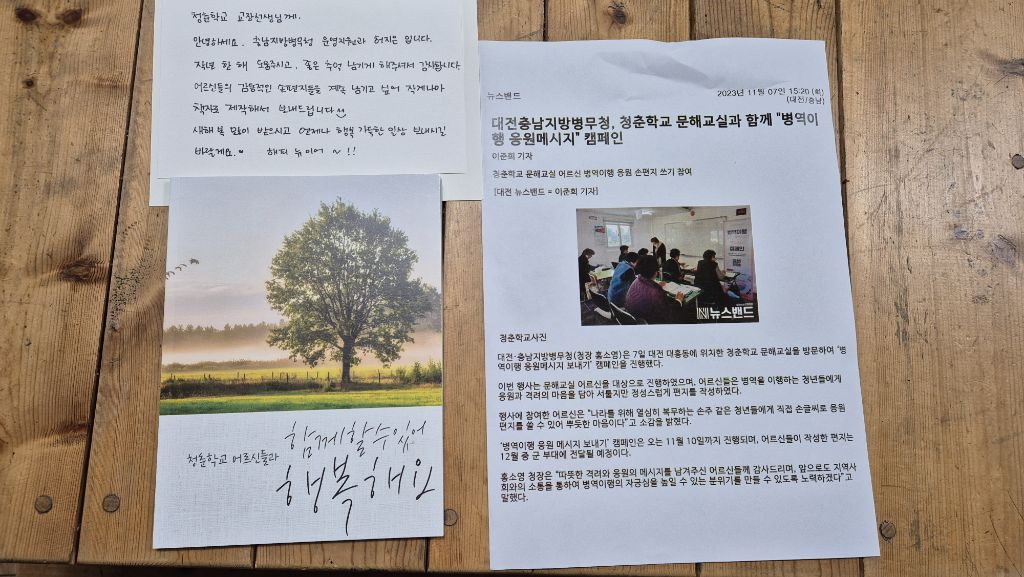 청춘학교 교장선생님께.
안녕하세요. 충남지방병무청 운영지원과 허지은 입니다.
작년 한 해 도와주시고, 좋은 추억 남기게 해주셔서 감사합니다.
어르신들의 감동적인 손편지들을 계속 남기고 싶어 작게나마
책자로 제작해서 보내드립니다
새해 복 많이 받으시고 언제나 행복 가득한 일상 보내시길
바랄게요. 해피 뉴 이어 ~ !!
청춘학교 어르신들과
함께할 수 있어
행복해요
뉴스밴드
2023년 11월 07일 15:20 (화)
(대전/충남)
대전충남지방병무청, 청춘학교 문해교실과 함께 "병역이
행 응원메시지" 캠페인
이준희 기자
청춘학교 문해교실 어르신 병역이행 응원 손편지 쓰기 참여
[대전 뉴스밴드 = 이준희 기자]
뉴스밴드
청춘학교사진
대전·충남지방병무청(청장 홍소영)은 7일 대전 대흥동에 위치한 청춘학교 문해교실을 방문하여 '병
역이행 응원메시지 보내기' 캠페인을 진행했다.
이번 행사는 문해교실 어르신을 대상으로 진행하였으며, 어르신들은 병역을 이행하는 청년들에게
응원과 격려의 마음을 담아 서툴지만 정성스럽게 편지를 작성하였다.
행사에 참여한 어르신은 "나라를 위해 열심히 복무하는 손주 같은 청년들에게 직접 손글씨로 응원
편지를 쓸 수 있어 뿌듯한 마음이다"고 소감을 밝혔다.
'병역이행 응원 메시지 보내기' 캠페인은 오는 11월 10일까지 진행되며, 어르신들이 작성한 편지는
12월 중 군 부대에 전달될 예정이다.
홍소영 청장은 "따뜻한 격려와 응원의 메시지를 남겨주신 어르신들께 감사드리며, 앞으로도 지역사
회와의 소통을 통하여 병역이행의 자긍심을 높일 수 있는 분위기를 만들 수 있도록 노력하겠다"고
말했다.